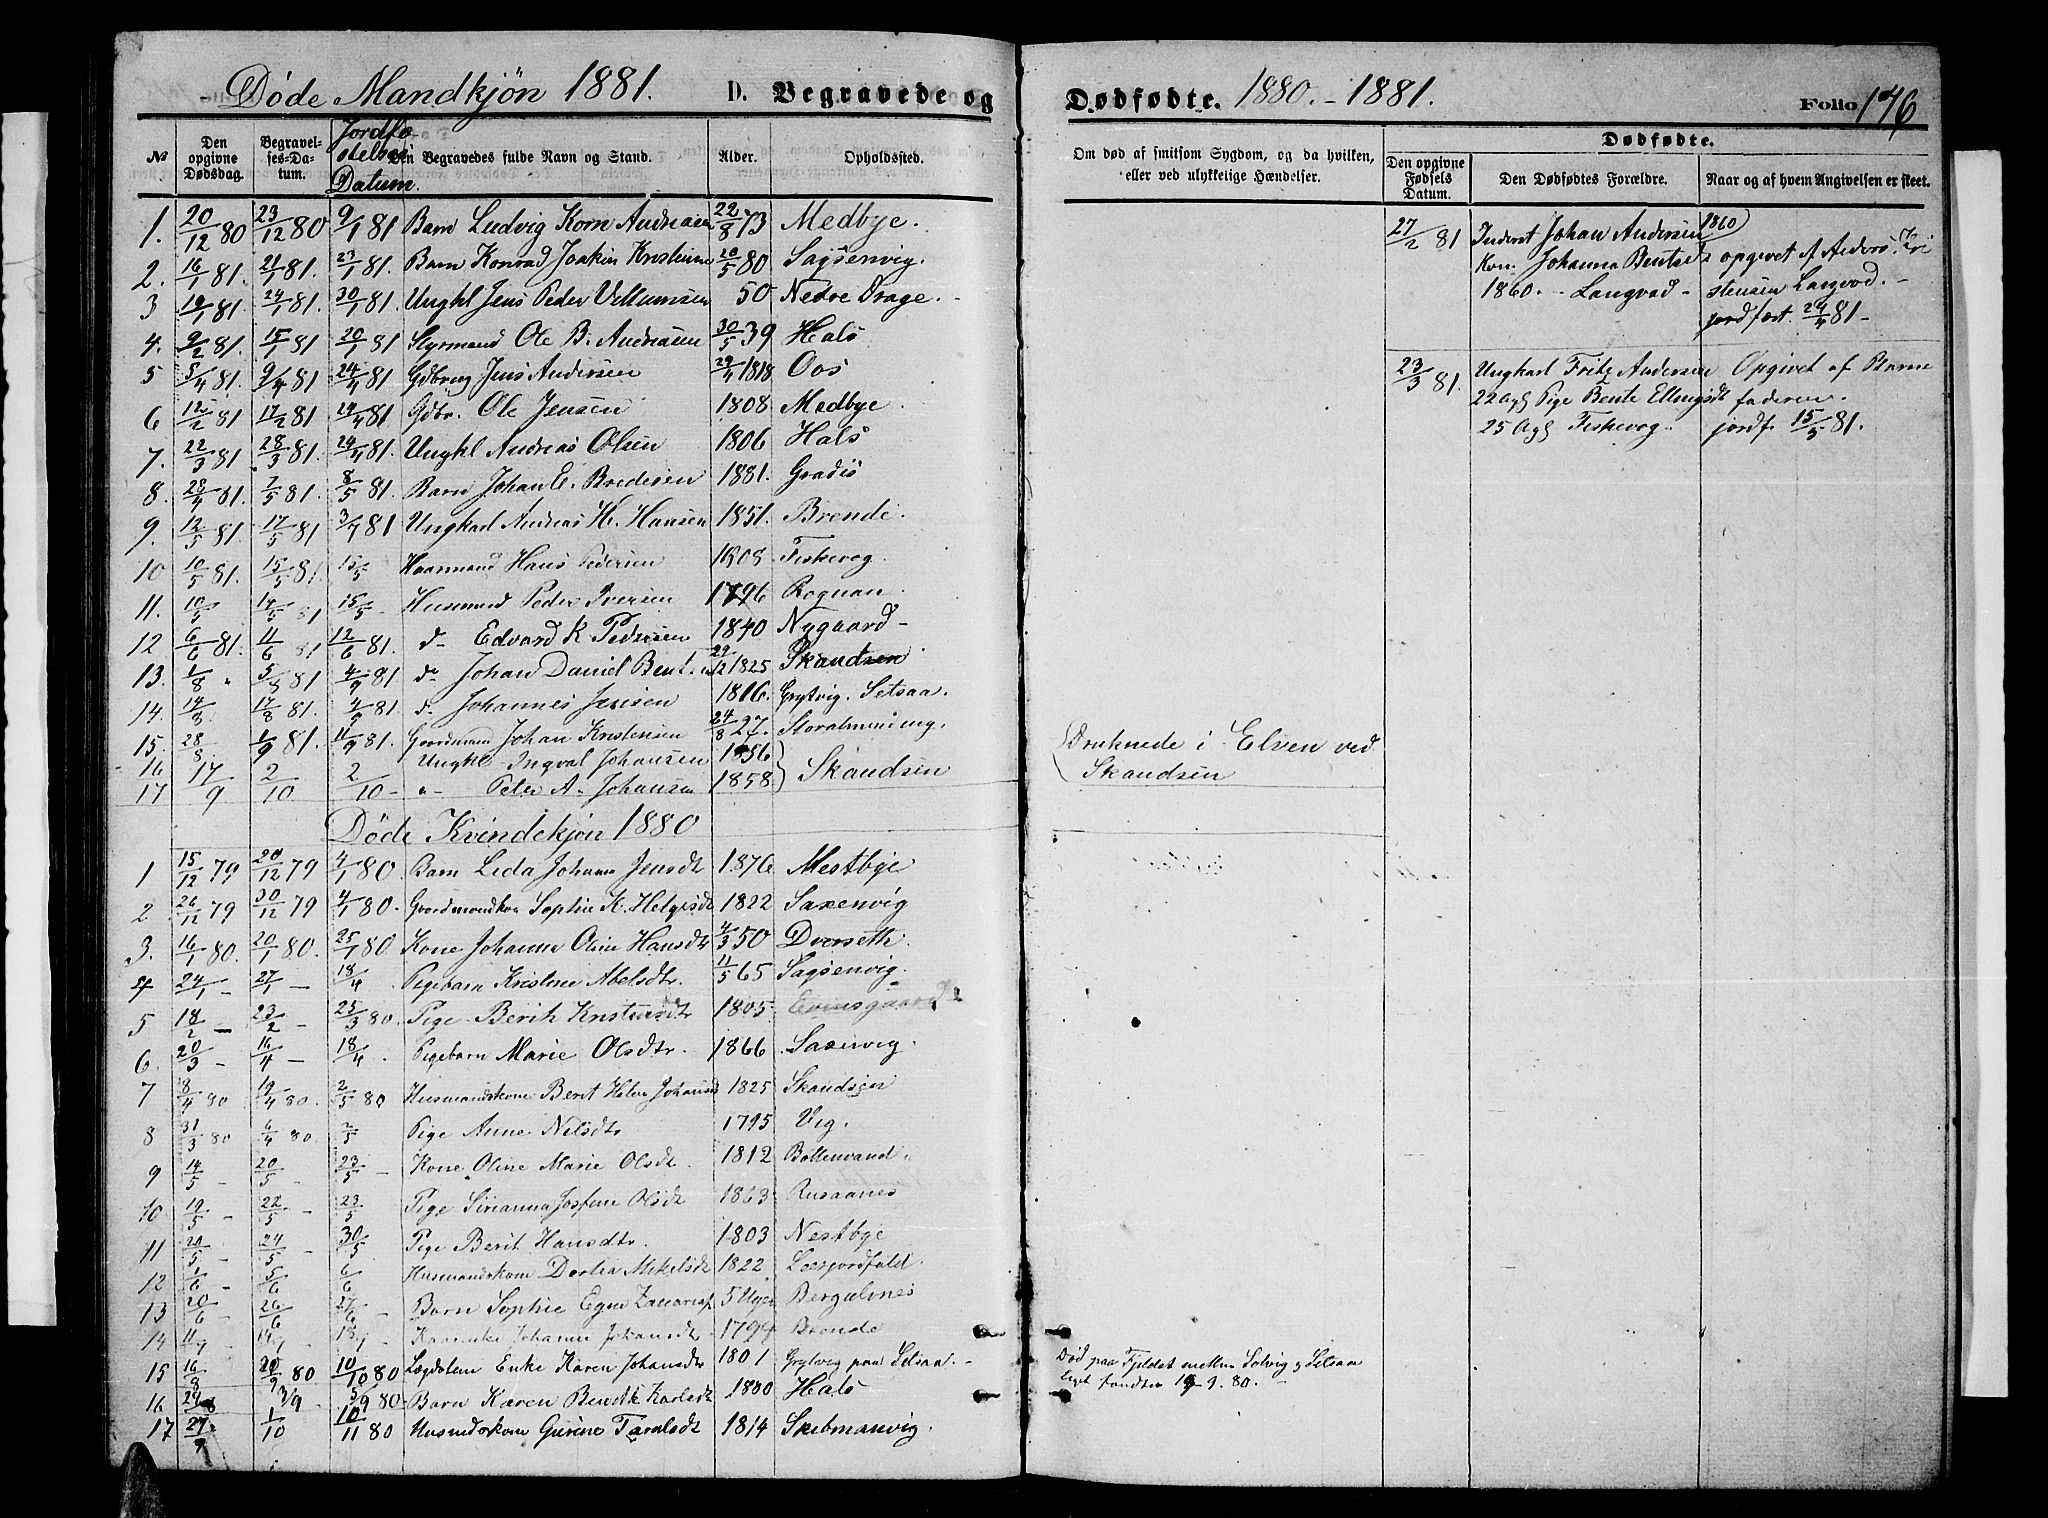 Døde Mandkjøn 1881. D. Begravede og
Dødfødte. 1880. - 1881. Folio 146
№
Den opgivne Dødsdag.
Begravelses-Datum.
Jordfæstelses Datum.
Den Begravedes fulde Navn og Stand.
Alder.
Opholdssted.
Om død af smitsom Sygdom, og da hvilken, eller ved ulykkelige Hændelser.
Dødfødte.
Den opgivne Fødsels Datum.
Den Dødfødtes Forældre.
Naar og af hvem Angivelsen er skeet.
1. 20/12 80 23/12 80 9/1 81 Barn Ludvig Korn Andreasen 22/8 73 Medbye.
2. 16/1 81. 21/1 81. 23/1 81. Barn Konrad Joakim Kristensen 20/5 80 Sagsenvig.
3 19/1 81 24/1 81. 30/1 81. Ungkl Jens Peder Villumsen 50 Nedre Drage.
4. 9/2 81. 15/1 81 20/1 81 Styrmand Ole B. Andreasen 30/5 39 Hals
5 5/4 81 9/4 81 24/4 81 Gdbrug Jens Andersen 29/4 1818 Oos
6 12/2 81 17/2 81 24/4 81 Gdbr. Ole Jensen 1808. Medbye.
7. 22/3 81 28/3 81. 24/4 81. Ungkl Andreas Olsen 1806 Hals
8. 28/4 81. 7/5 81. 8/5 81. Barn Johan E. Bredesen 1881. Gradis
9. 12/5 81. 17/5 81 3/7 81 Ungkarl Andreas H. Hansen 1851. Brende.
10 10/5 81. 15/5 81 15/5 Kaarmand Hans Pedersen 1808. Fiskevog.
11. 10/5 14/5 81 15/5 - Husmand Peder Iversen 1796 Rognan.
12 6/6 81. 11/6 81 12/6 81. d- Edvard K Pedersen 1840 Nygaard-
13. 1/8 " 5/8 81 4/9 81 do Johan Daniel Bent 29/12 1825 Skandsen
14. 14/8 17/8 81. 4/9 81. d- Johannes Jensen 1816. Grytvig. Setsaa.
15. 28/8 1/9 81. 11/9 81. Gaardmand Johan Kristensen 24/8 27. Storalmening.
16 Ungkl Ingval Johansen 1856
17 17/9 2/10 2/10 - "- Peter A- Johansen 1858 } Skandsen
Druknede i Elven ved Skandsen
27/2 81 Inderst Johan Andersen 1860
Kon. Johanna Bentsdt
1860. - Langvad -
opgivet af Anders Kri
stensen Langvod. -
jordfæst. 24/4 81 -
23/3 81. Ungkarl Fritz Andersen
22 Ag§ Pige Bente Ellingsdt
25 Ag§ Fiskevog.
Opgivet af Barne
faderen.
jordf. 15/5 81.
Døde Kvindekjøn 1880
1 15/12 79 20/12 79 4/1 80. Barn Leda Johanna Jensdt 1876 Mestbye
2 26/12 79 30/12 79 4/1 80. Gaardmandkon Sophie K. Helgesdt 1822 Saxenvig
3. 16/1 80. 20/1 80. 25/1 80 Kone Johanne Oline Hansdtr 4/3 50 Dverseth.
4 24/1 - 27/1 - 18/4 Pigebarn Kristine Abelsdt. 11/5 65 Sagsenvig.
5 18/2 - 23/2 - 25/3 80 Pige Berith Kristiansdtr 1805. Evensgaard
6. 20/3 - 16/4 - 18/4. Pigebarn Marie Olsdtr. 1866 Saxenvig.
7 8/4 80 19/4 80. 2/5 80 Husmandskone Berit Helene Johansd 1825 Skandsen
8 31/3 80 6/4 80. 2/5 Pige Anne Nilsdtr 1795 Vig.
9 14/5 - 20/5 - 23/5 - Kone Oline Marie Olsdt. 1812 Bottenvand.
10 19/5 - 22/5 - 23/5 Pige Sirianna Josfine Olsdt 1863 Rusaanes
11 20/5 - 24/5 - 30/5 Pige Berit Hansdtr. 1803 Nestbye
12 1/6 - 5/6 6/6 Husmandskone Dortea Mikelsdt 1822
13 20/6 - 26/6 27/6 - Barn Sophie 5 Uger Bergulnes
14 11/7 - 14/7 - 18/7 - Johanne Johansdtr 1799 Brende
15 16/8 20/9 80 10/10 80 Lægdslem Enke Karen Johansdtr 1801 Grytvig paa Setsaa. -
Død paa Fjeldet mellem Solvig og Setsaa
liget fandtes 19.9.80. -
16 24/8 3/9 5/9 80 - Barn Karen Bendk Karlsdt. 1880 Hals
17 27/9 1/10 10/11 80 Husmdskone Gurine Taralsdt 1814 Skibmanvig.